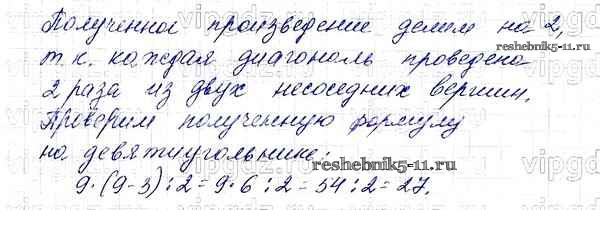 Полученное произведение делим на 2,
т.к. каждая диагональ проведена
reshebnik5-11.ru
2 раза из двух несоседних вершин.
Проверим полученную формулу
на девятиугольнике:
reshebnik5-11.ru
9·(9-3):2=9·6:2=54:2=27.